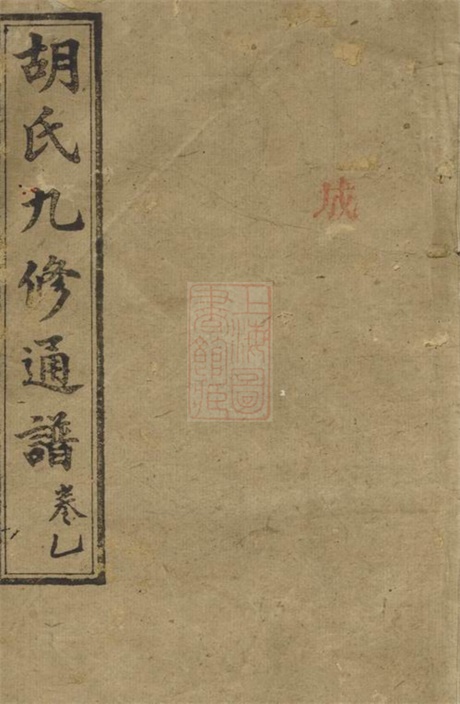 胡氏九修通譜
卷乙
成
上海圖
書館藏